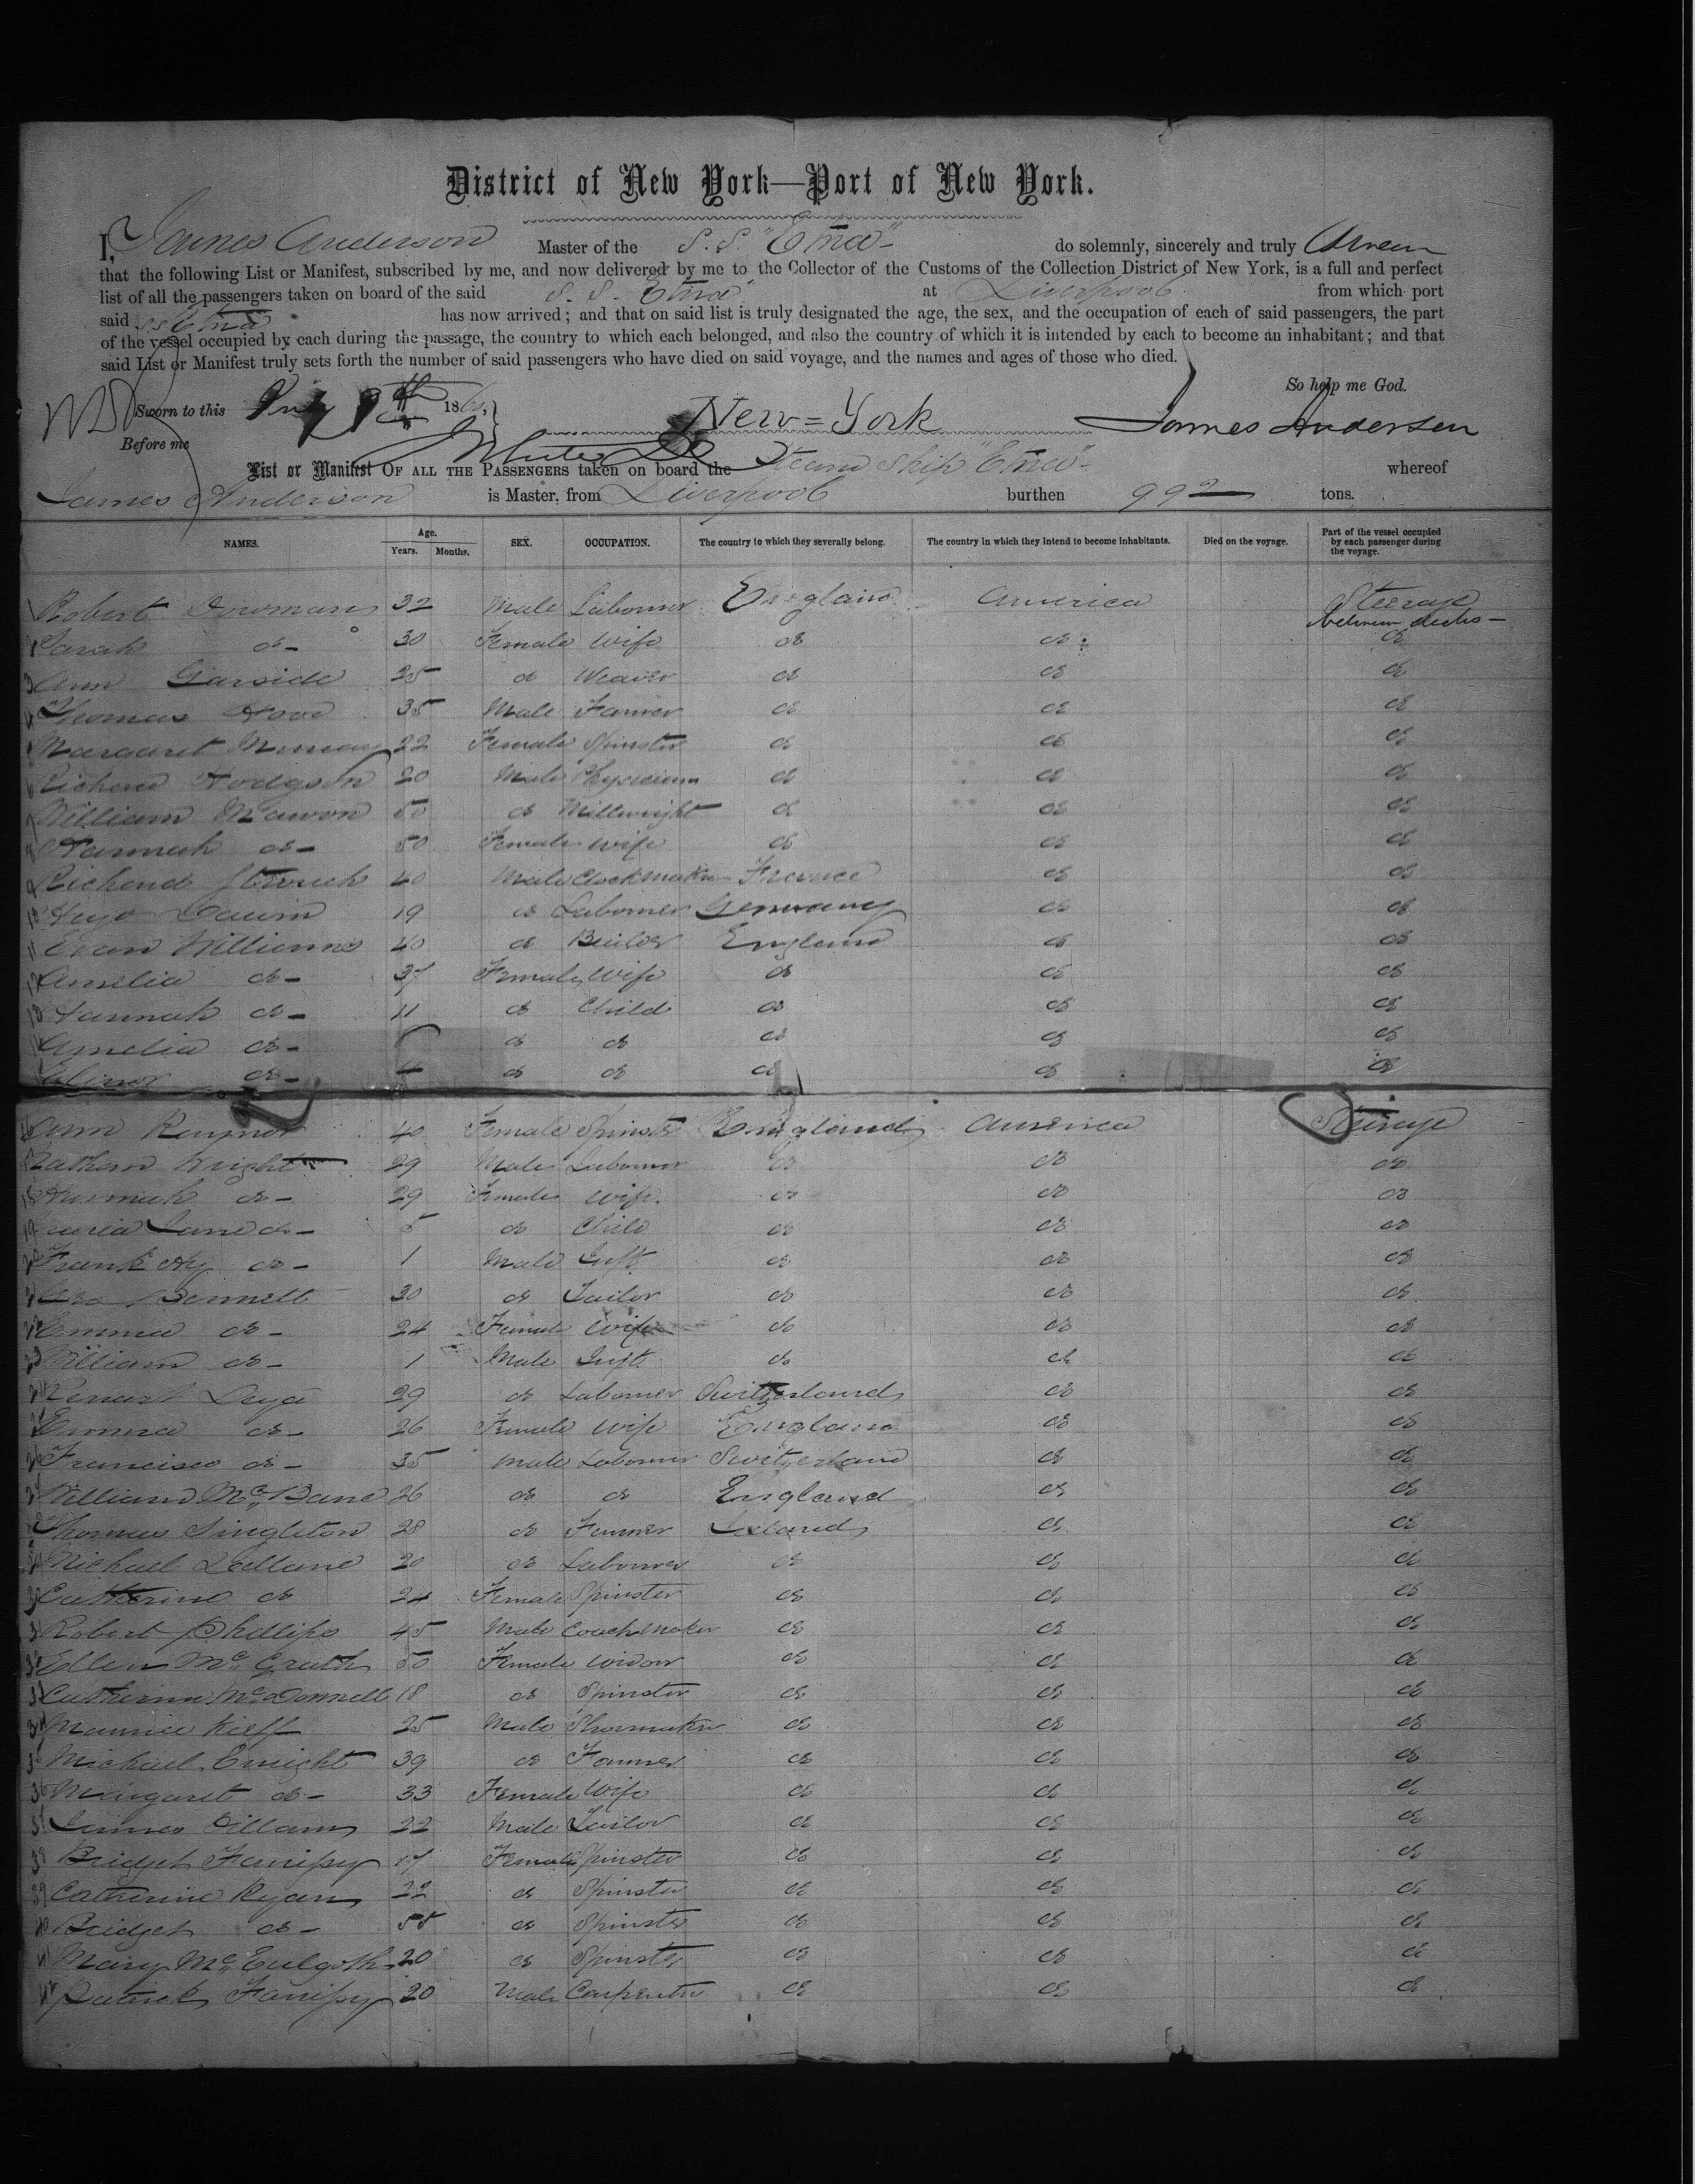 District of New York—Port of New York.
I, James Anderson Master of the S.S. "Etna" do solemnly, sincerely and truly swear
that the following List or Manifest, subscribed by me, and now delivered by me to the Collector of the Customs of the Collection District of New York, is a full and perfect
list of all the passengers taken on board of the said S.S. Etna at Liverpool from which port
said SS Etna has now arrived; and that on said list is truly designated the age, the sex, and the occupation of each of said passengers, the part
of the vessel occupied by each during the passage, the country to which each belonged, and also the country of which it is intended by each to become an inhabitant; and that
said List or Manifest truly sets forth the number of said passengers who have died on said voyage, and the names and ages of those who died.
So help me God.
Sworn to this July 186
Before me New=York James Anderson
List or Manifest OF ALL THE PASSENGERS taken on board the Steam Ship "Etna" whereof
James Anderson is Master, from Liverpool burthen 992 tons.
NAMES. Age. Years. Months. SEX. OCCUPATION. The country to which they severally belong. The country in which they intend to become inhabitants. Died on the voyage. Part of the vessel occupied by each passenger during the voyage.
1 Robert 32 Male Labourer England America Steerage between decks
2 Sarah do 30 Female Wife do do do
3 Ann Garside 25 do Weaver do do do
4 Thomas 35 Male Farmer do do do
5 Margaret 22 Female Spinster do do do
6 Richard Hodgson 20 Male Physician do do do
7 William Mawon 50 do Millwright do do do
8 Hannah do 50 Female Wife do do do
9 Richard 40 Male Clockmaker France do do
10 Hugo 19 do Labourer Germany do do
11 Evan Williams 40 do Builder England do do
12 Amelia do 37 Female Wife do do do
13 Hannah do 11 do Child do do do
14 Amelia do do do do do do
15 do do do do do do
16 Ann Raynor 40 Female Spinster England America Steerage
17 Nathan Knight 29 Male Labourer do do do
18 Hannah do 29 Female Wife do do do
19 Maria Jane do 5 do Child do do do
20 Frank Hy do 1 Male Inft do do do
21 Geo Bennett 30 do Tailor do do do
22 Emma do 24 Female Wife do do do
23 William do 1 Male Inft do do do
24 29 do Labourer Switzerland do do
25 Emma do 26 Female Wife England do do
26 Francisco do 35 Male Labourer Switzerland do do
27 William McBane 26 do do England do do
28 Thomas Singleton 28 do Farmer Ireland do do
29 Michael 20 do Labourer do do do
30 Catherine do 24 Female Spinster do do do
31 Robert Phillips 45 Male Coachmaker do do do
32 Ellen McGrath 50 Female Widow do do do
33 Catherine McDonnell 18 do Spinster do do do
34 Maurice Kieff 25 Male Shoemaker do do do
35 Michael Enright 39 do Farmer do do do
36 Margaret do 33 Female Wife do do do
37 James 22 Male Tailor do do do
38 Bridget 17 Female Spinster do do do
39 Catherine Ryan 22 do Spinster do do do
40 Bridget do 55 do Spinster do do do
41 Mary 20 do Spinster do do do
42 Patrick 20 Male Carpenter do do do